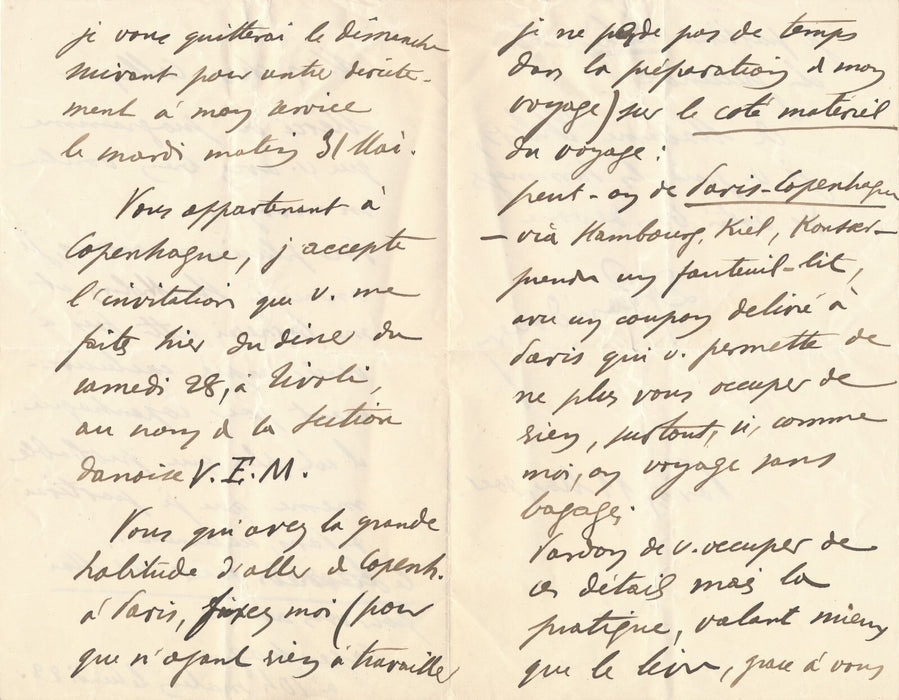 je vous quitterai le dimanche
suivant pour rentrer directe-
ment à mon service
le mardi matin 31 Mai.
Vous appartenant à
Copenhague, j'accepte
l'invitation que v. me
faites hier du diner du
samedi 28, à Tivoli,
au nom de la Section
danoise V.E.M.
Vous qui avez la grande
habitude d'aller de Copenh.
à Paris, fixez moi (pour
que n'ayant rien à travailler
je ne perde pas de temps
dans la préparation de mon
voyage) sur le coté matériel
du voyage:
peut-on de Paris-Copenhague
– via Hambourg, Kiel, Korsör –
prendre un fauteuil-lit,
avec un coupon delivré à
Paris qui v. permette de
ne plus vous occuper de
rien, surtout, si, comme
moi, on voyage sans
bagages.
Pardon de v. occuper de
ces détails mais la
pratique, valant mieux
que le livre, grace à vous